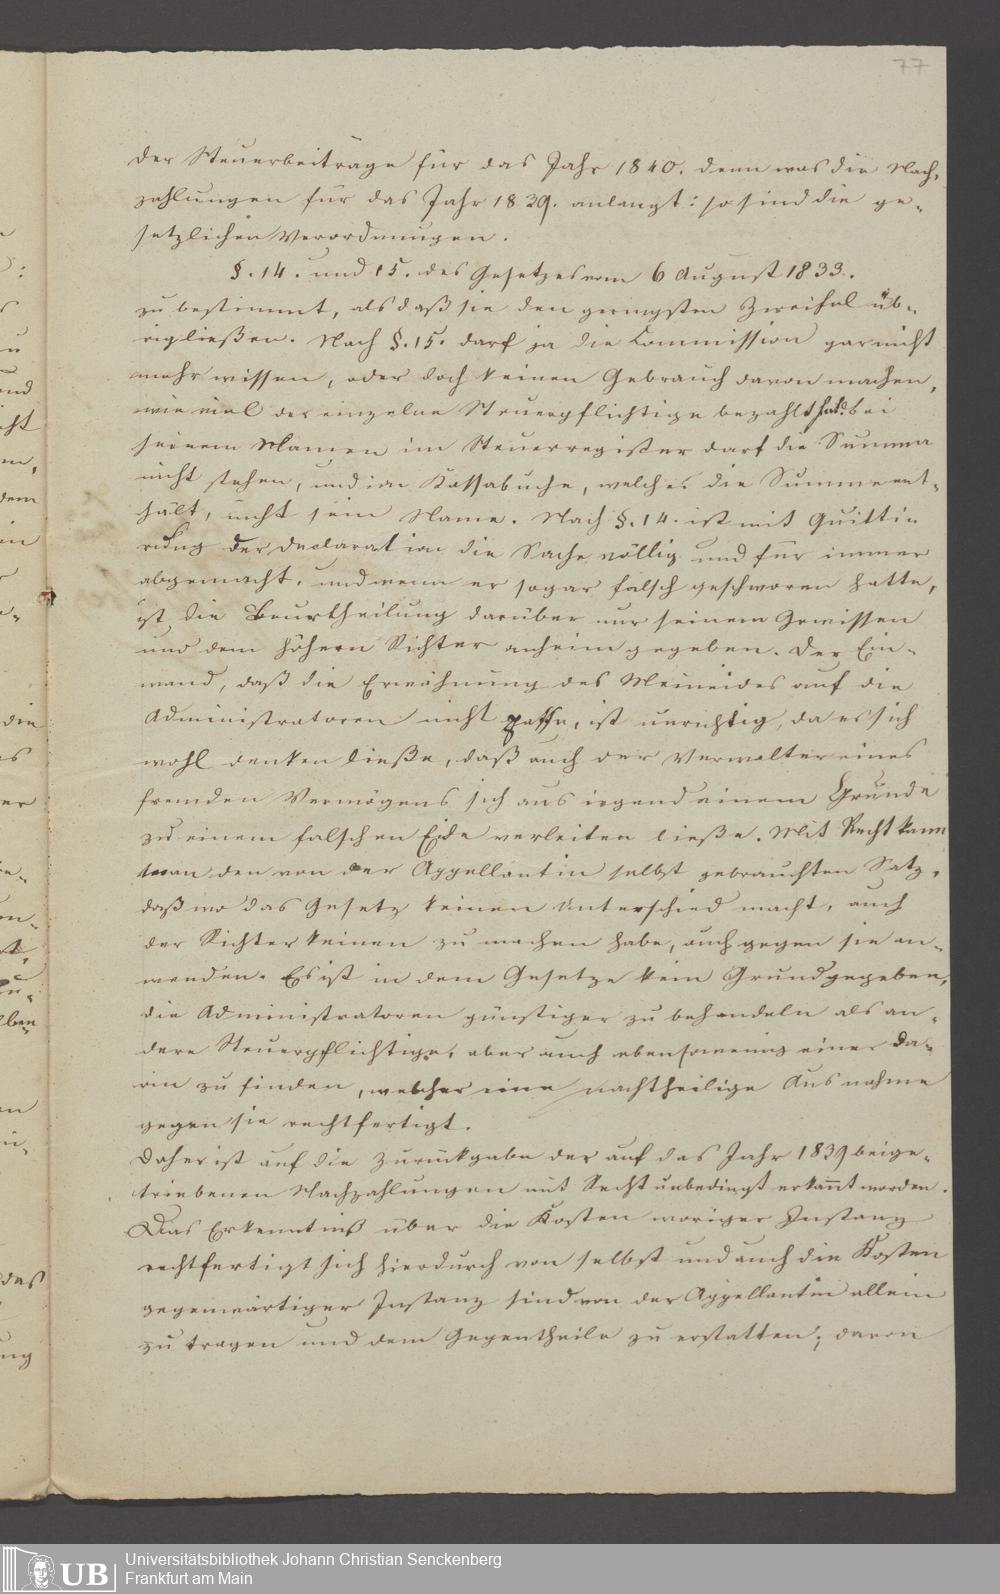 77
der Steuerbeiträge für das Jahr 1840. denn was die Nach-
zahlungen für das Jahr 1839. anlangt: so sind die ge-
setzlichen Verordnungen.
§. 14. und 15. des Gesetzes vom 6 August 1833.
zu bestimmt, als daß sie den geringsten Zweifel üb-
rigließen. Nach §. 15. darf ja die Commission gar nicht
mehr wissen, oder doch keinen Gebrauch davon machen,
wie viel der einzelne Steuerpflichtige bezahlt hat. bei
seinem Namen im Steuerregister darf die Summa
nicht stehen, und im Kassabuche, welches die Summe ent-
hält, nicht sein Name. Nach §. 14. ist mit Quitti-
rung der Declaration die Sache völlig und für immer
abgemacht, und wenn er sogar falsch geschworen hatte,
ist die Beurtheilung darüber nur seinem Gewissen
und dem höhern Richter anheim gegeben. Der Ein-
wand, daß die Erwähnung des Meineides auf die
Administratoren nicht passe, ist unrichtig, da es sich
wohl denken ließe, daß auch der Verwalter eines
fremden Vermögens sich aus irgend einem Grunde
zu einem falschen Eide verleiten ließe. Mit Recht kann
man den von der Appellantin selbst gebrauchten Satz,
daß wo das Gesetz keinen Unterschied macht, auch
der Richter keinen zu machen habe, auch gegen sie an-
wenden. Es ist in dem Gesetze kein Grund gegeben,
die Administratoren günstiger zu behandeln als an-
dere Steuerpflichtige, aber auch ebensowenig einer da-
rin zu finden, welcher eine nachtheilige Ausnahme
gegen sie rechtfertigt.
Daher ist auf die Zurückgabe der auf das Jahr 1839 beige-
triebenen Nachzahlungen mit Recht unbedingt erkannt worden.
Das Erkenntniß über die Kosten voriger Instanz
rechtfertigt sich hierdurch von selbst und auch die Kosten
gegenwärtiger Instanz sind von der Appellantin allein
zu tragen und dem Gegentheile zu erstatten; davon
UB
Universitätsbibliothek Johann Christian Senckenberg
Frankfurt am Main